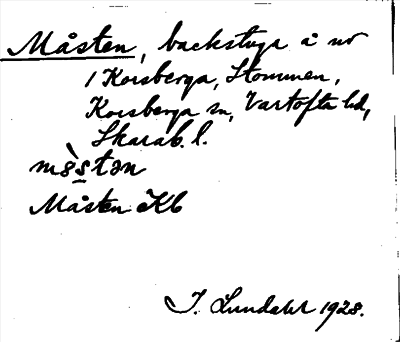 Måsten, backstuga å nr
1 Korsberga, Stommen,
Korsberga sn, Vartofta hd,
Skarab. l.
mɵ̀stən
Måsten Kb
I. Lundahl 1928.